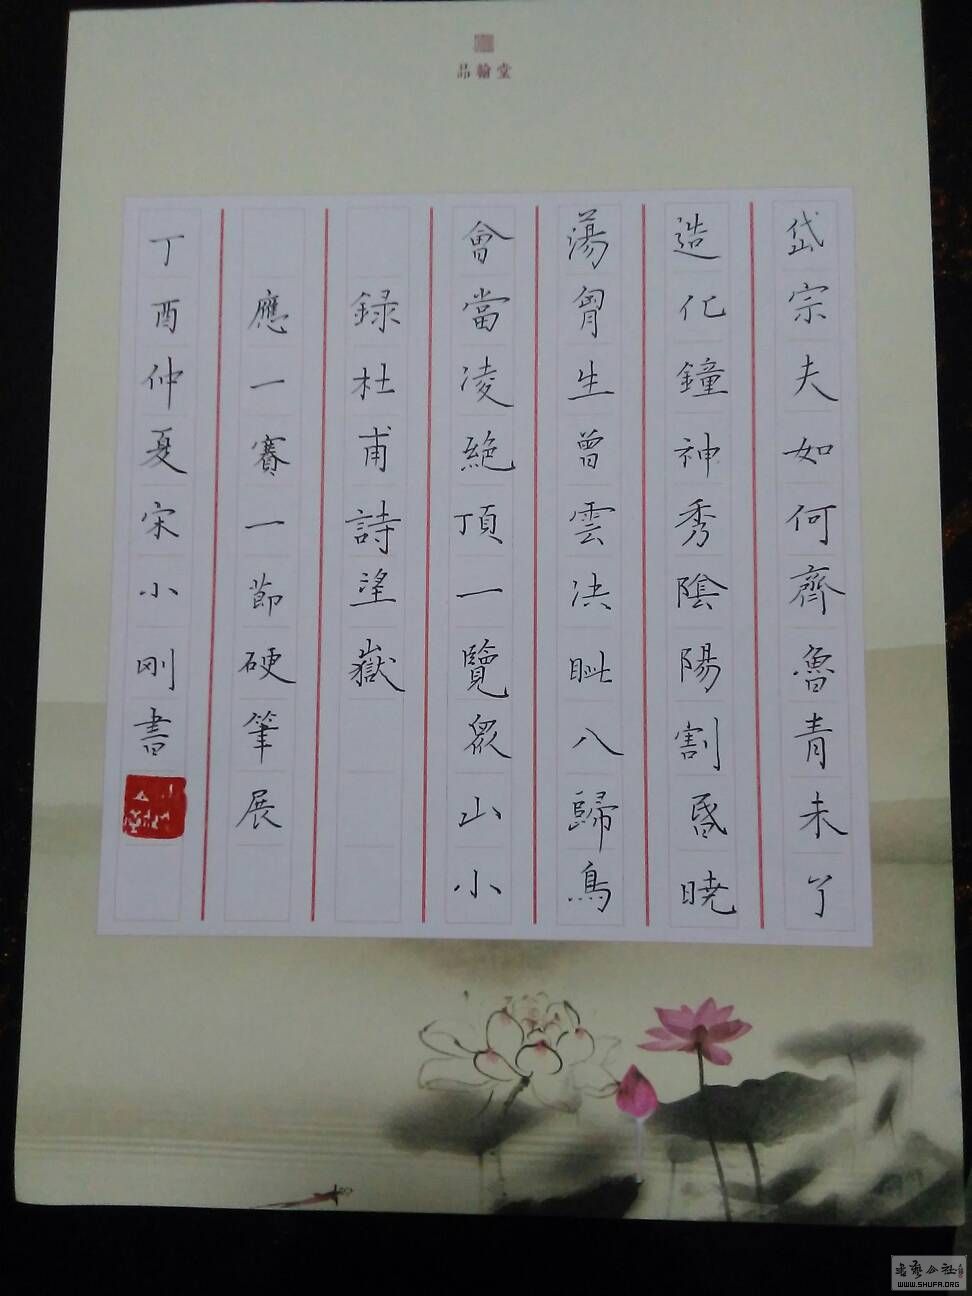 品翰堂
岱宗夫如何齊魯青未了
造化鐘神秀陰陽割昏曉
蕩胷生曾雲決眦入歸鳥
會當凌絕頂一覽眾山小
録杜甫詩望嶽
應一賽一節硬筆展
丁酉仲夏宋小刚書
書藝公社
WWW.SHUFA.ORG